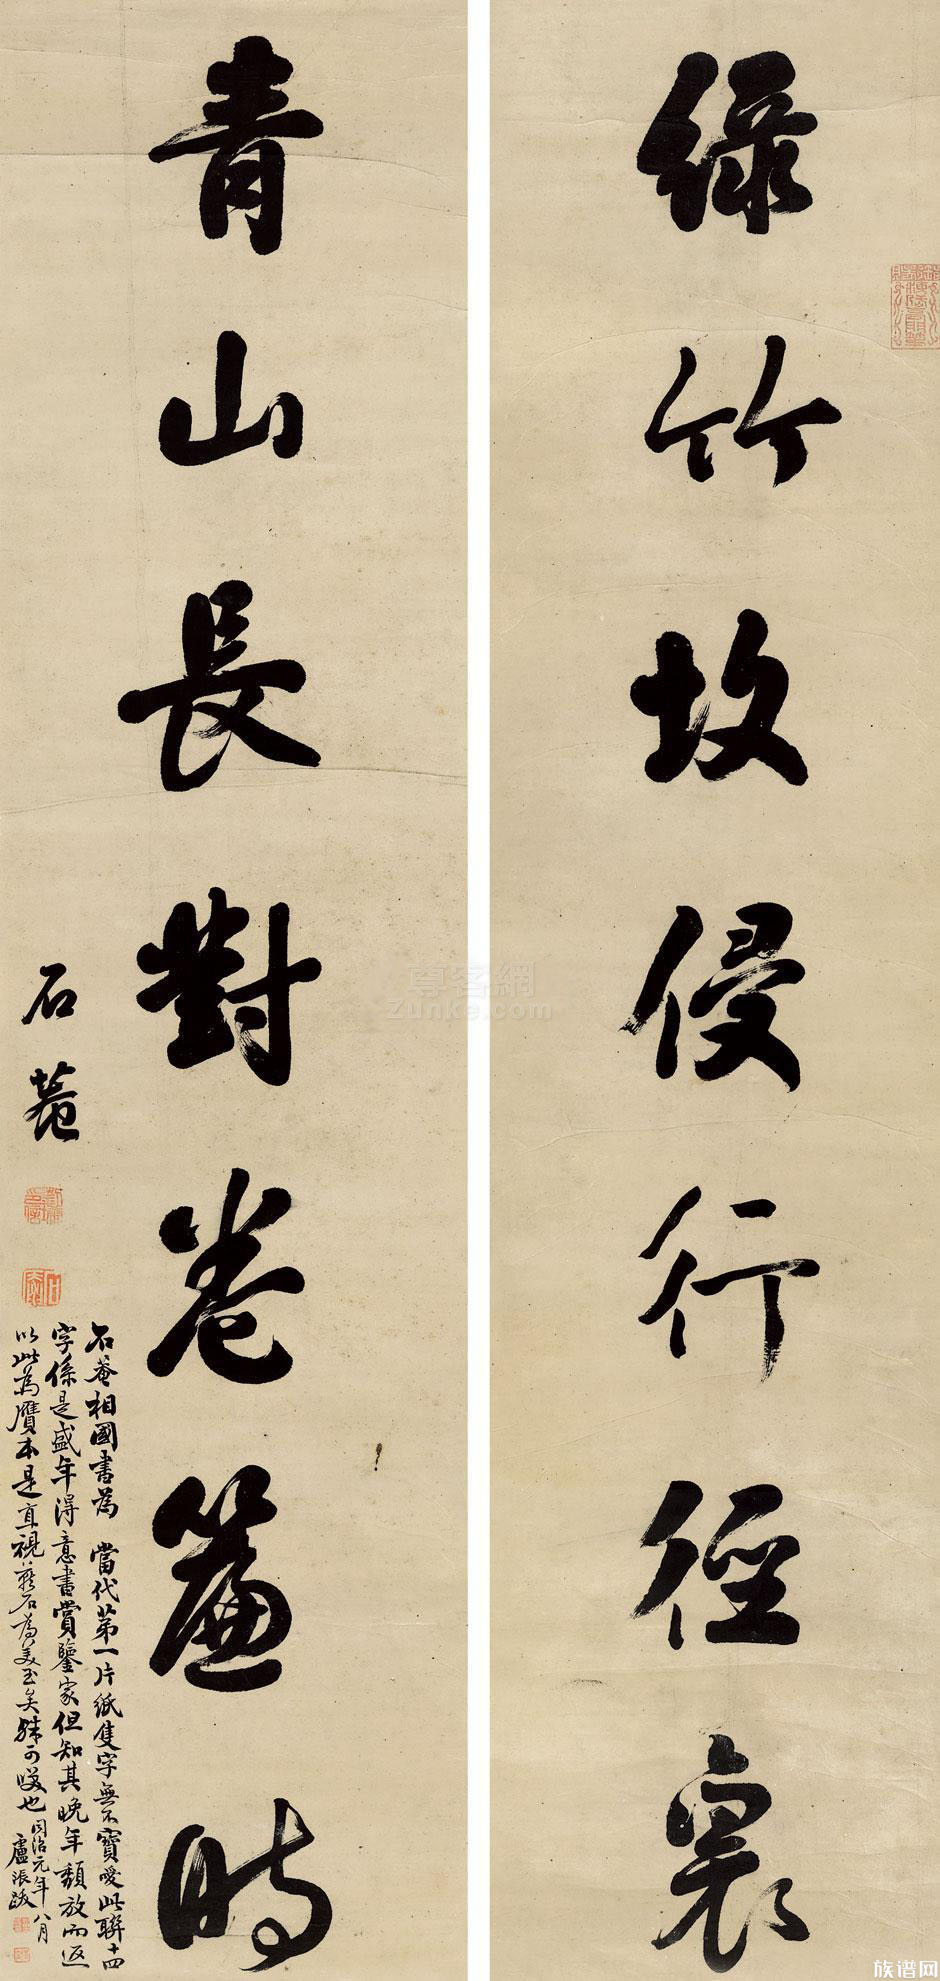 绿竹故侵行径裏
青山長對卷簾時
石菴
石菴相國書為
當代第一片紙隻字無不寶愛此聯十四
字係是盛年得意書賞鑒家但知其晚年頹放而返
以此為贋本是直視燕石為美玉矣殊可嘆也同治元年八月
盧張跋
尊客網
Zunke.com
族谱网